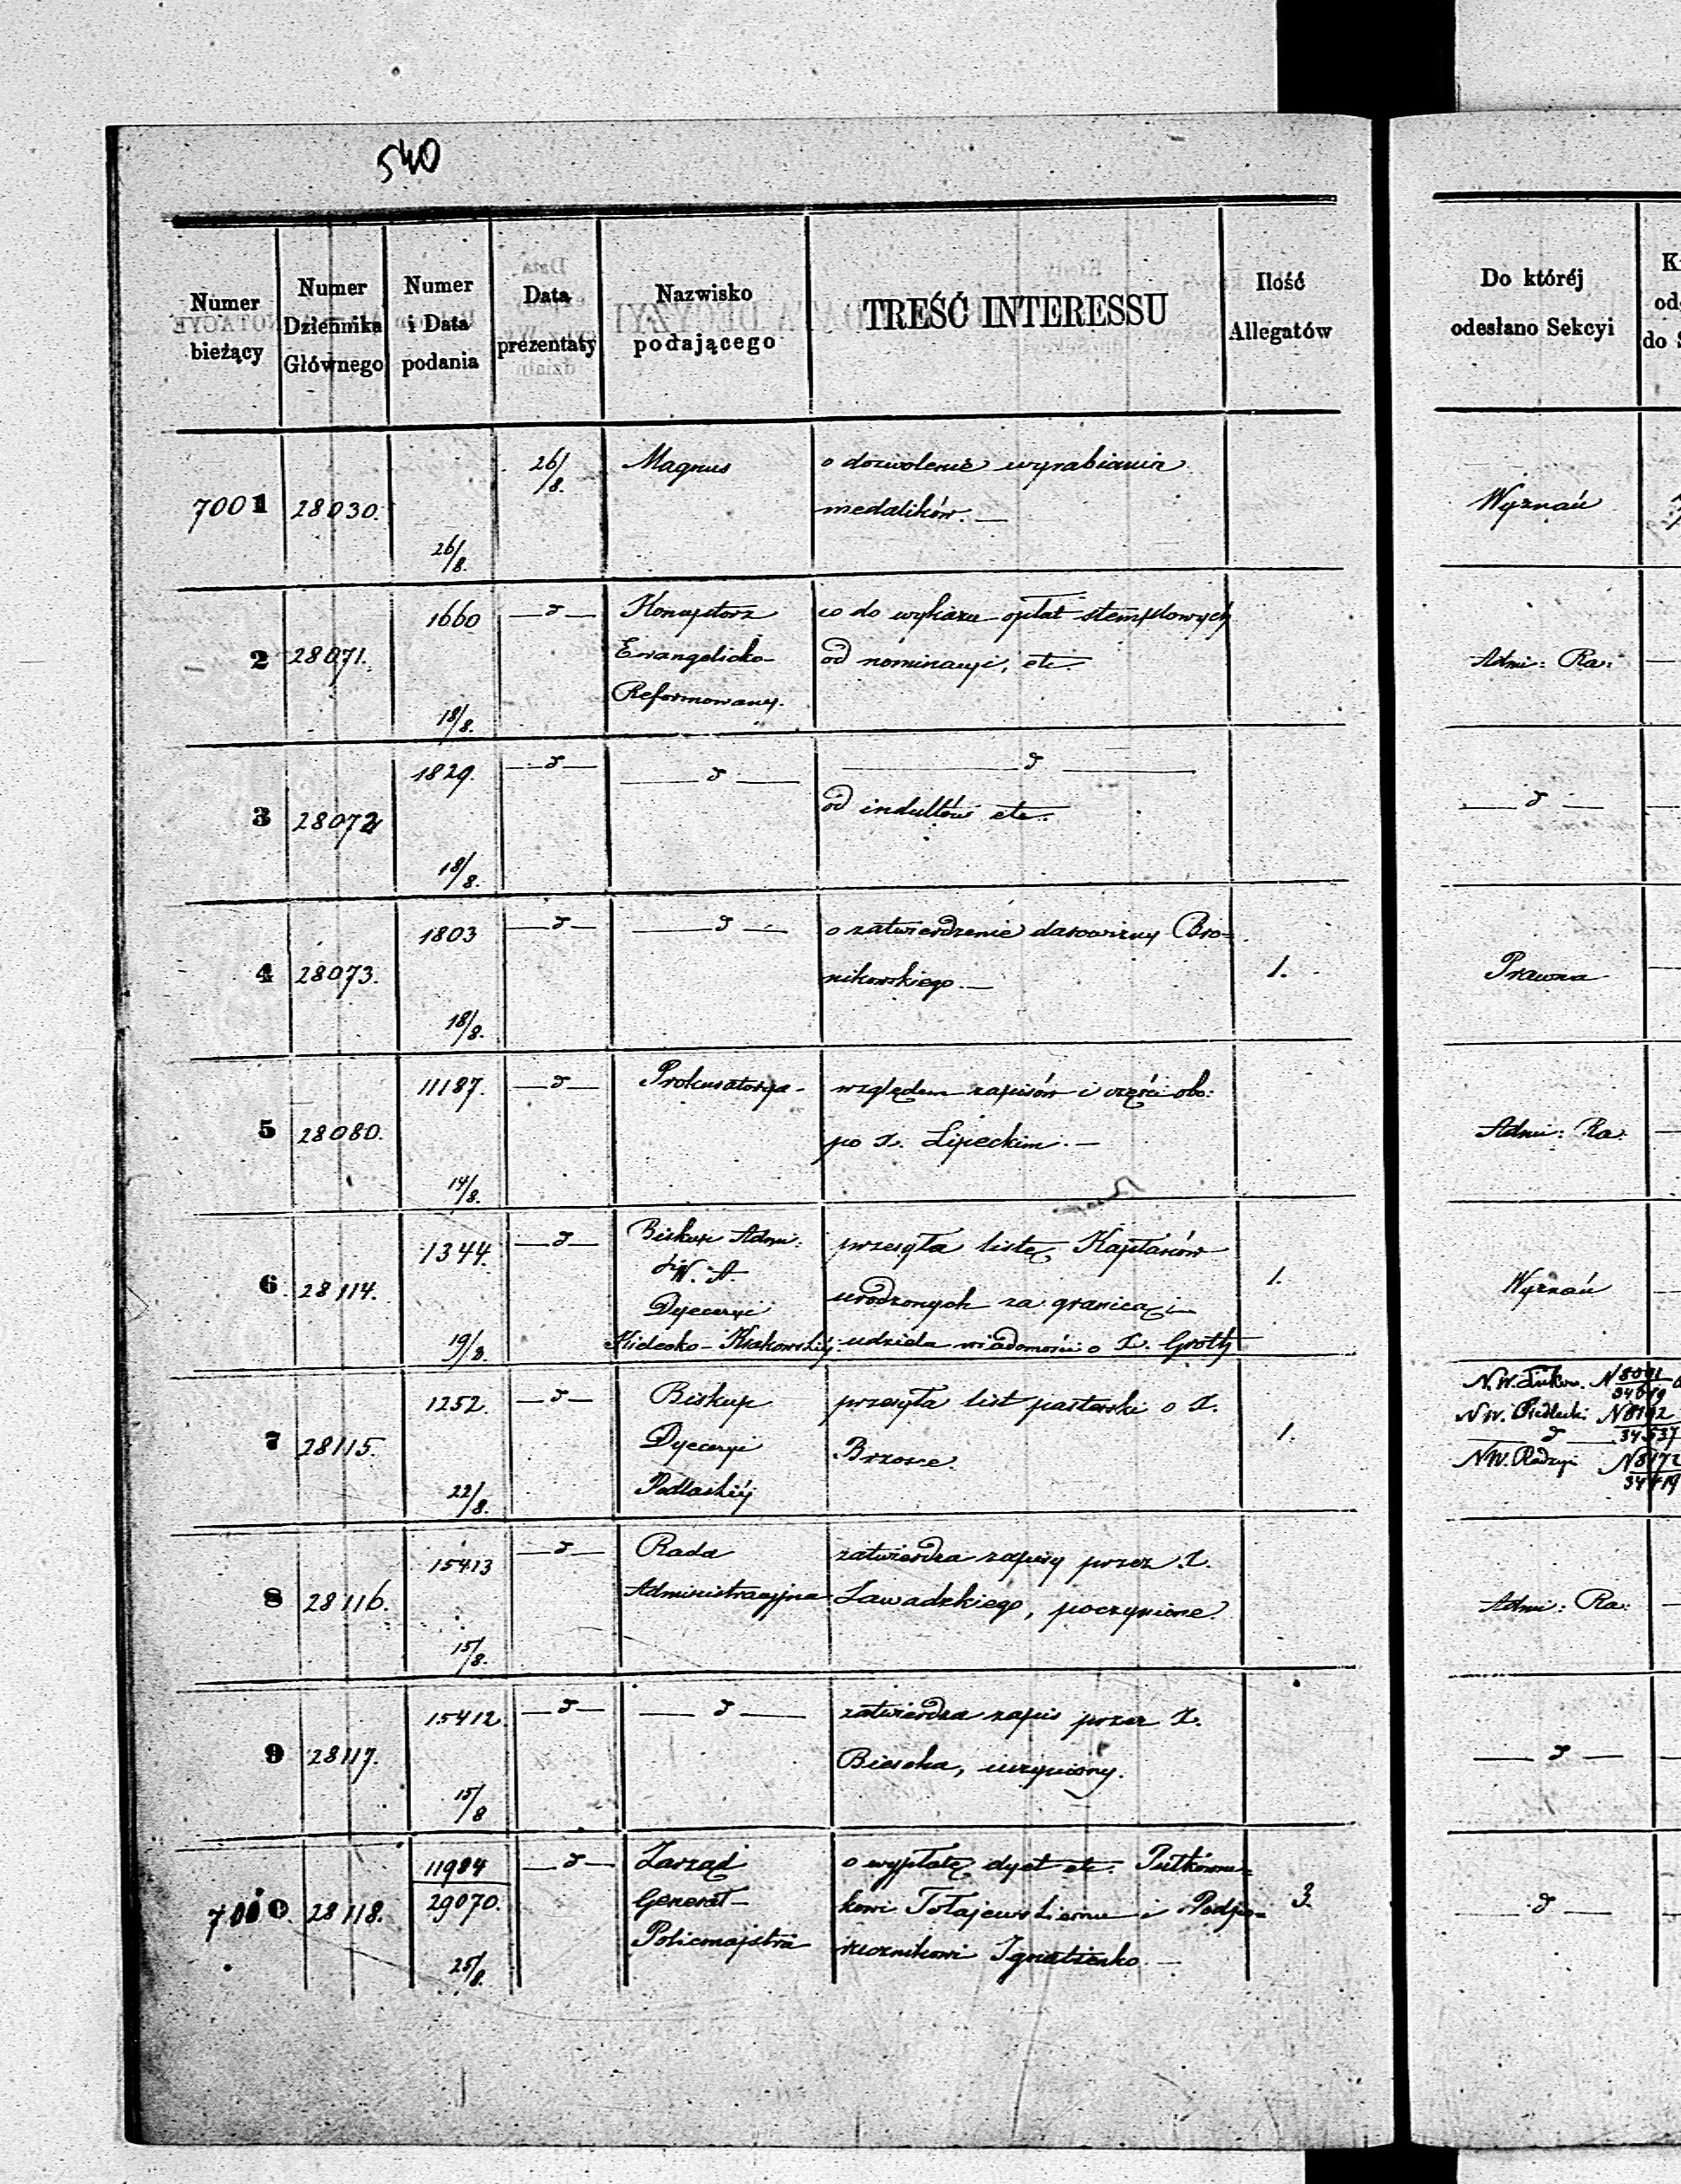 540
Numer bieżący
Numer Dziennika Głównego
Numer i Data podania
Data prezentaty
Nazwisko podającego
TREŚĆ INTERESSU
Ilość Allegatów
Do któréj odesłano Sekcyi
7001 28030. 26/8. 26/8. Magnus o dozwolenie wyrabiania
medalików. — Wyznań
2 28071. 1660 18/8. —d— Konsystorz co do wykazu opłat stemplowych
Ewangelicko- od nominacyi, etc Admi: Ra:
Reformowany.
3 28072 1829. 18/8. —d— —d— —d—
od indultów etc. —d—
4 28073. 1803 18/8. —d— —d— o zatwierdzenie darowizny Bro=
nikowskiego. — 1. Prawna
5 28080. 11187. 14/8. —d— Prokuratorya- względem zapisów i części obo:
po X. Lipeckim. — Admi: Ra:
6. 28114. 1344. 19/8. —d— Biskup Admi: przesyła listę Kapłanów
Dyecezyi urodzonych za granicą i 1. Wyznań
Kielecko-Krakowskiéj udziela wiadomości o X. Groth
7 28115. 1252. 22/8. —d— Biskup przesyła list pasterski o X.
Dyecezyi Brzosce. 1.
Podlaskiéj
N. W. Łukow. N 8091
N W. Siedlecki N 8102
—d— 34537
N W. Radzyń N 8172
8 28116. 15413 15/8. —d— Rada zatwierdza zapisy przez X.
Administracyjna Zawadzkiego, poczynione. Admi: Ra:
9 28117. 15412. 15/8 —d— —d— zatwierdza zapis przez X.
uczyniony. —d—
7010. 28118. 11984 29070. 25/8. —d— Zarząd o wypłatę dyet etc. Pułkowni=
Generał- kowi i Podpo= 3. —d—
Policmajstra rucznikowi Ignatienko. —